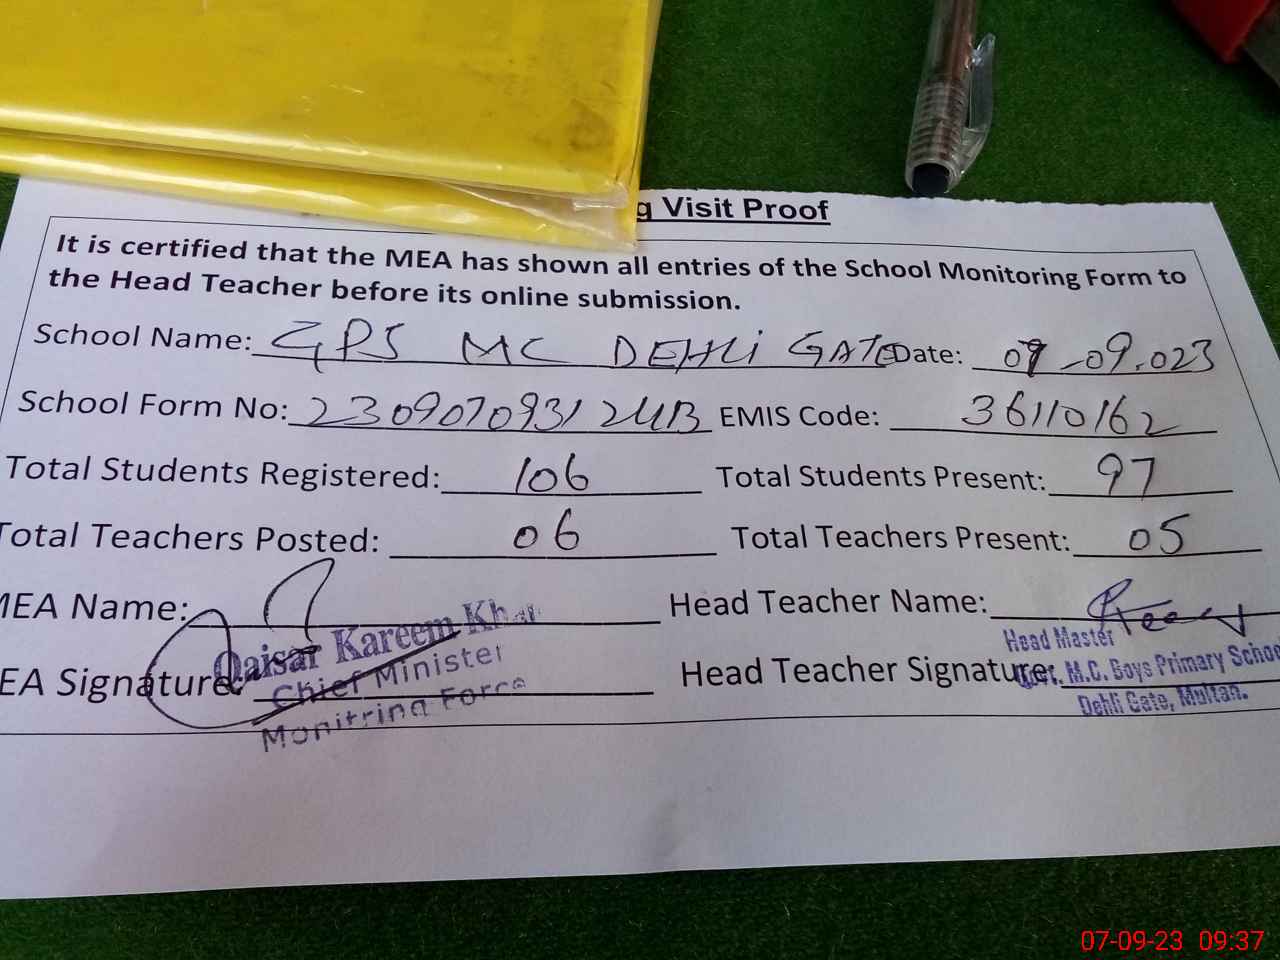 g Visit Proof
It is certified that the MEA has shown all entries of the School Monitoring Form to
the Head Teacher before its online submission.
School Name: GPS MC DEHLi GATE Date: 07-09.023
School Form No: 230907093124B EMIS Code: 36110162
Total Students Registered: 106 Total Students Present: 97
Total Teachers Posted: 06 Total Teachers Present: 05
MEA Name: Head Teacher Name:
Qaisar Kareem Khan
Head Master
EA Signature: Head Teacher Signature:
Chief Minister
Monitring Force
Govt. M.C. Boys Primary School
Dehli Gate, Multan.
07-09-23 09:37